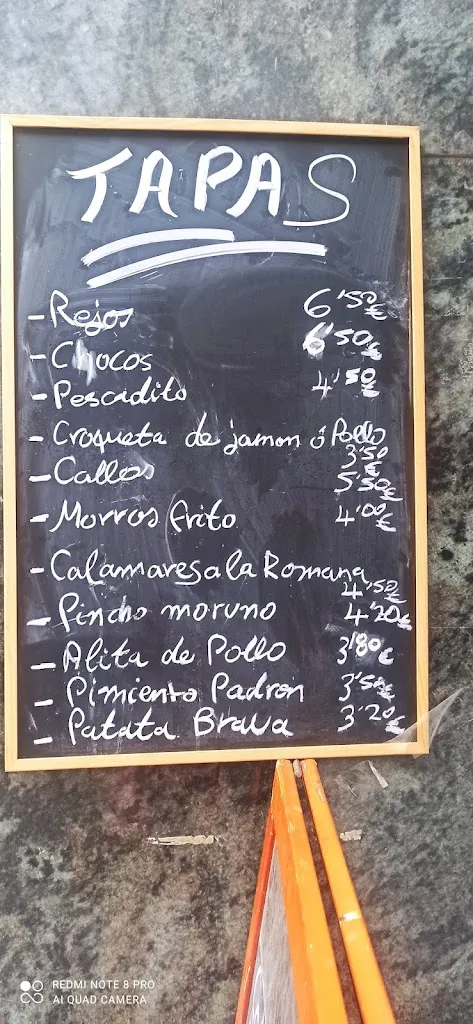 TAPAS
- Rejos 6'50€
- Chocos 6'50€
- Pescadito 4'50€
- Croqueta de jamon ó Pollo
3'50€
- Callos 5'50€
- Morros frito 4'00€
- Calamares a la Romana
4'50€
- Pincho moruno 4'20€
- Alita de Pollo 3'80€
- Pimiento Padron 3'50€
- Patata Brava 3'20€
REDMI NOTE 8 PRO
AI QUAD CAMERA